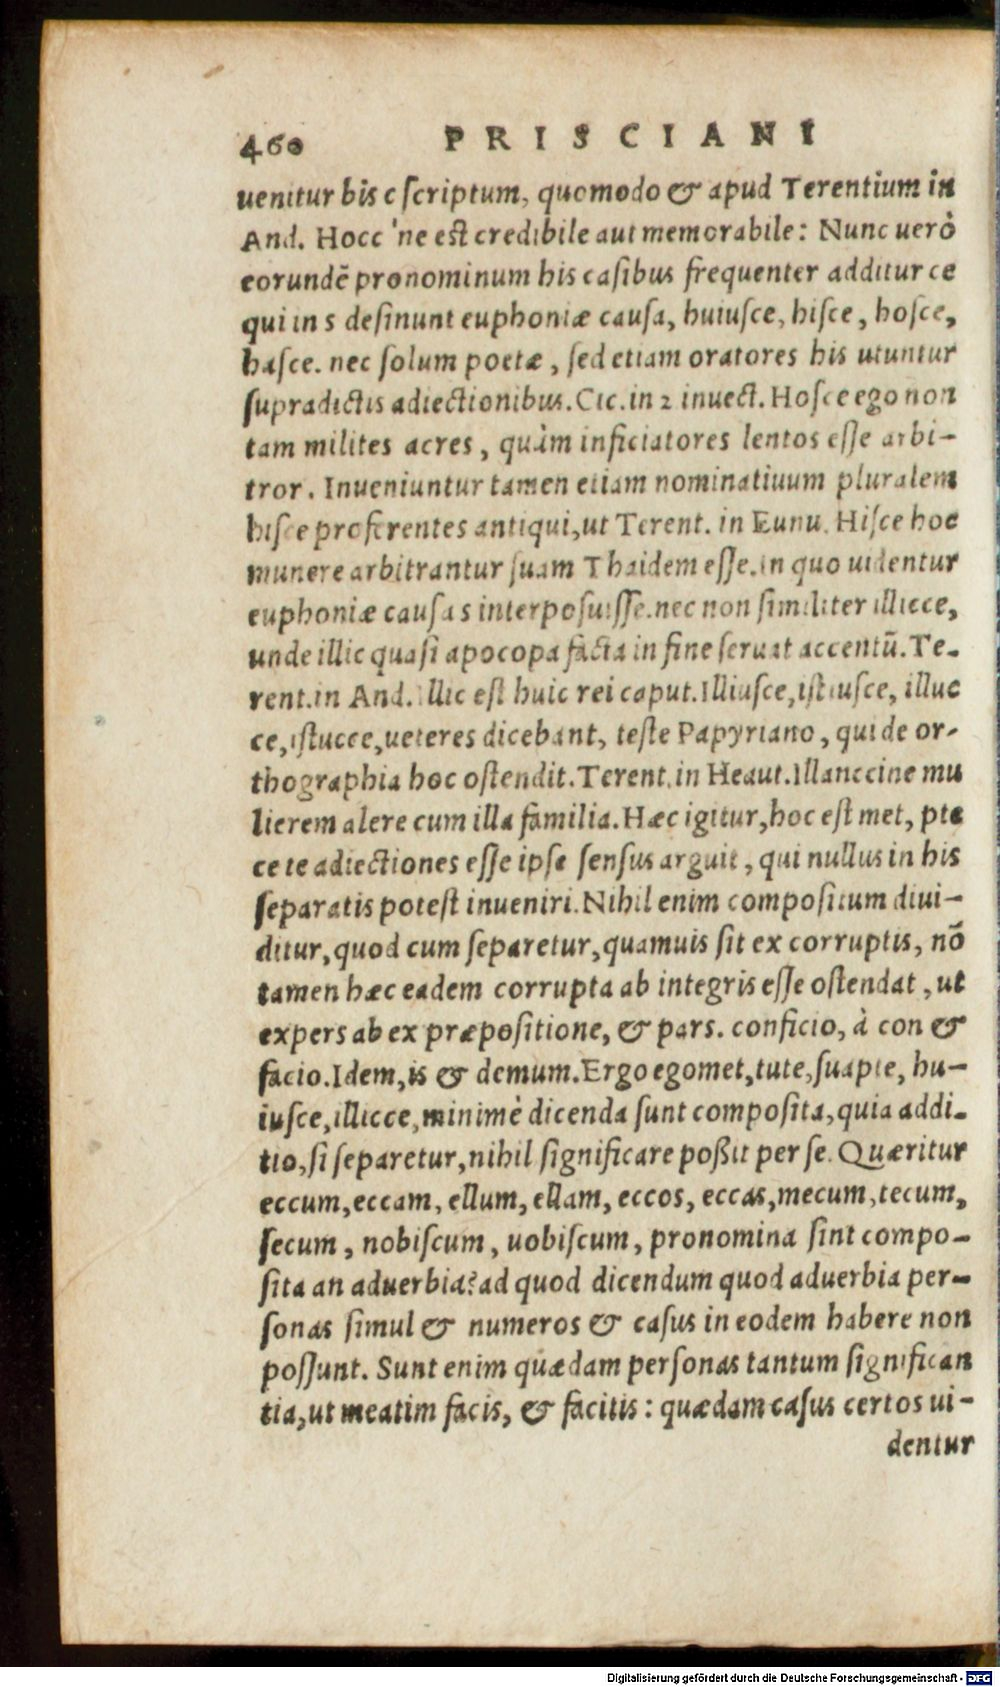 460 PRISCIANI
uenitur bis c ſcriptum, quomodo & apud Terentium in
And. Hocc 'ne eſt credibile aut memorabile: Nunc uerò
eorundē pronominum his caſibus frequenter additur ce
qui in s deſinunt euphoniæ cauſa, huiuſce, hiſce, hoſce,
haſce. nec ſolum poetæ, ſed etiam oratores his utuntur
ſupradictis adiectionibus. Cic. in 2 inuect. Hoſce ego non
tam milites acres, quàm inficiatores lentos eſſe arbi-
tror. Inueniuntur tamen etiam nominatiuum pluralem
hiſce proferentes antiqui, ut Terent. in Eunu. Hiſce hoc
munere arbitrantur ſuam Thaidem eſſe. in quo uidentur
euphoniæ cauſa s interpoſuiſſe. nec non ſimiliter illicce,
unde illic quaſi apocopa facta in fine ſeruat accentū. Te-
rent. in And. Illic eſt huic rei caput. Illiuſce, iſtiuſce, illuc
ce, iſtucce, ueteres dicebant, teſte Papyriano, qui de or-
thographia hoc oſtendit. Terent. in Heaut. Illanccine mu
lierem alere cum illa familia. Hæc igitur, hoc eſt met, pte
ce te adiectiones eſſe ipſe ſenſus arguit, qui nullus in his
ſeparatis poteſt inueniri. Nihil enim compoſitum diui-
ditur, quod cum ſeparetur, quamuis ſit ex corruptis, nō
tamen hæc eadem corrupta ab integris eſſe oſtendat, ut
expers ab ex præpoſitione, & pars. conficio, à con &
facio. Idem, is & demum. Ergo egomet, tute, ſuapte, hu-
iuſce, illicce, minimè dicenda ſunt compoſita, quia addi-
tio, ſi ſeparetur, nihil ſignificare poßit per ſe. Quæritur
eccum, eccam, ellum, ellam, eccos, eccas, mecum, tecum,
ſecum, nobiſcum, uobiſcum, pronomina ſint compo-
ſita an aduerbia? ad quod dicendum quod aduerbia per-
ſonas ſimul & numeros & caſus in eodem habere non
poſſunt. Sunt enim quædam perſonas tantum ſignifican
tia, ut meatim facis, & facitis: quædam caſus certos ui-
dentur
Digitalisierung gefördert durch die Deutsche Forschungsgemeinschaft - DFG